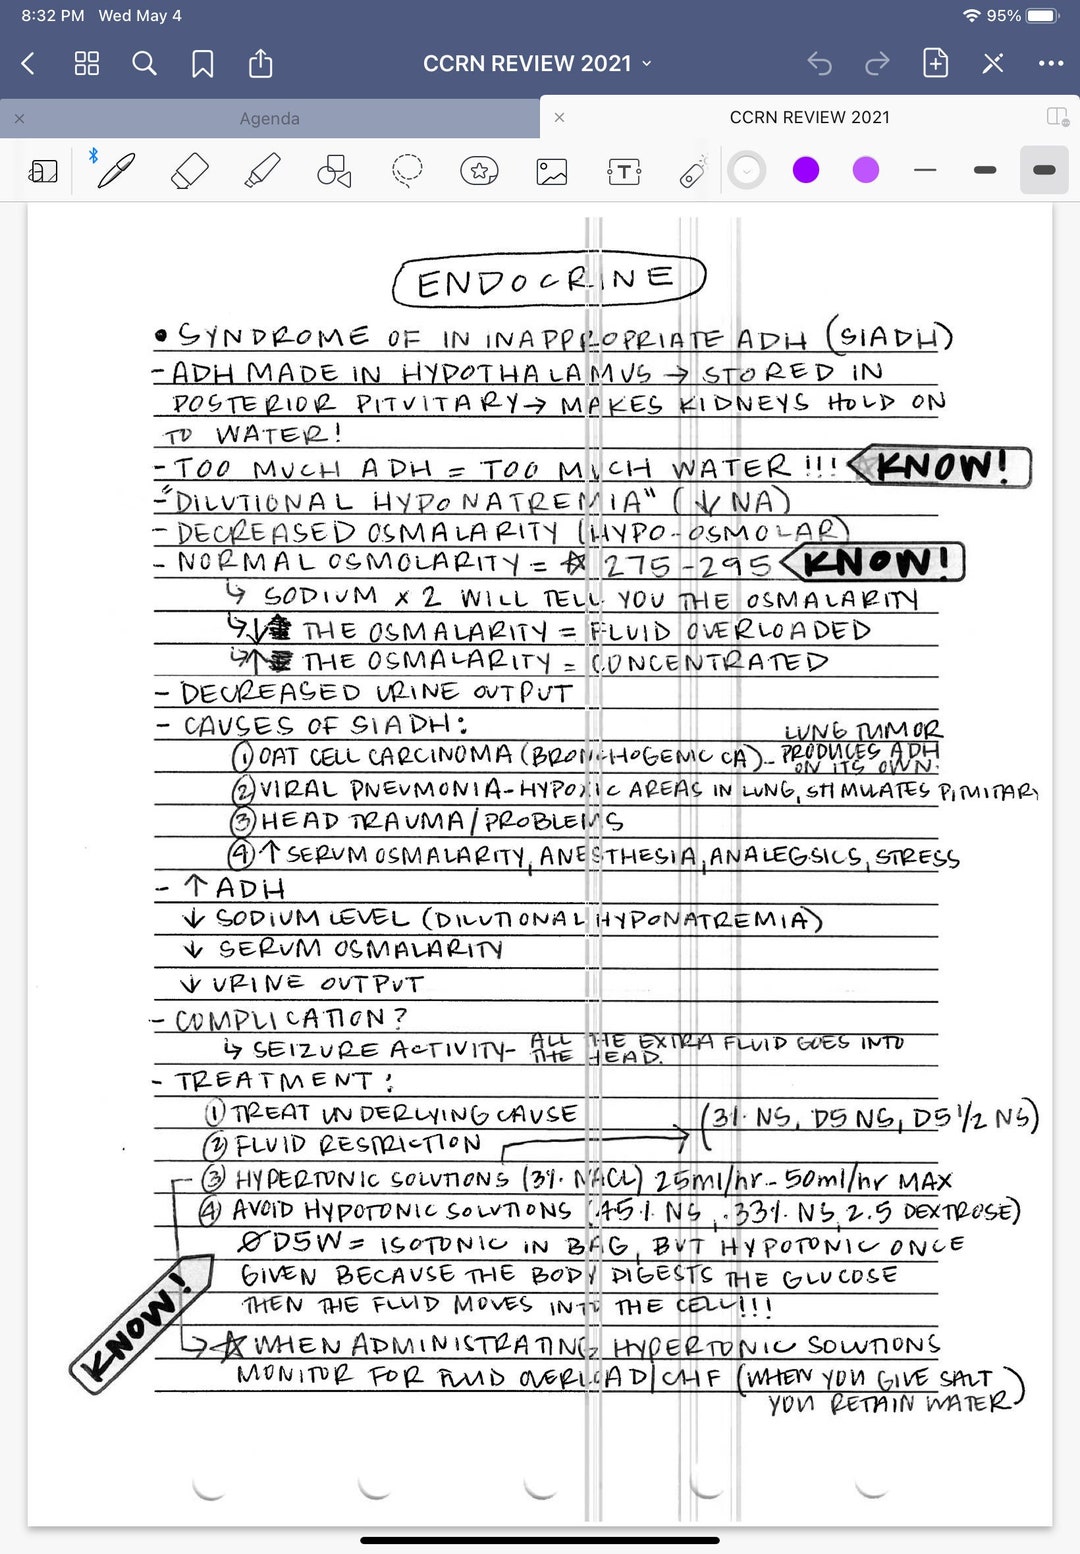 8:32 PM Wed May 4
95%
CCRN REVIEW 2021
Agenda
CCRN REVIEW 2021
T
ENDOCRINE
• SYNDROME OF IN INAPPROPRIATE ADH (SIADH)
- ADH MADE IN HYPOTHALAMUS → STORED IN
POSTERIOR PITUITARY → MAKES KIDNEYS HOLD ON
TO WATER!
- TOO MUCH ADH = TOO MUCH WATER !!! KNOW!
- "DILUTIONAL HYPONATREMIA" (↓ NA)
- DECREASED OSMALARITY (HYPO-OSMOLAR)
- NORMAL OSMOLARITY = ☆ 275-295 KNOW!
↳ SODIUM x 2 WILL TELL YOU THE OSMALARITY
↳ ↓ THE OSMALARITY = FLUID OVERLOADED
↳ ↑ THE OSMALARITY = CONCENTRATED
- DECREASED URINE OUTPUT
- CAUSES OF SIADH:
① OAT CELL CARCINOMA (BRONCHOGENIC CA) - LUNG TUMOR
PRODUCES ADH
ON ITS OWN.
② VIRAL PNEUMONIA - HYPOXIC AREAS IN LUNG, STIMULATES PITUITARY
③ HEAD TRAUMA/PROBLEMS
④ ↑ SERUM OSMALARITY, ANESTHESIA, ANALEGSICS, STRESS
- ↑ ADH
↓ SODIUM LEVEL (DILUTIONAL HYPONATREMIA)
↓ SERUM OSMALARITY
↓ URINE OUTPUT
- COMPLICATION?
↳ SEIZURE ACTIVITY - ALL THE EXTRA FLUID GOES INTO
THE HEAD.
- TREATMENT:
① TREAT UNDERLYING CAUSE
② FLUID RESTRICTION → (3% NS, D5 NS, D5 1/2 NS)
③ HYPERTONIC SOLUTIONS (3% NACL) 25ml/hr - 50ml/hr MAX
④ AVOID HYPOTONIC SOLUTIONS (.45% NS, .33% NS, 2.5 DEXTROSE)
Ø D5W = ISOTONIC IN BAG, BUT HYPOTONIC ONCE
GIVEN BECAUSE THE BODY DIGESTS THE GLUCOSE
THEN THE FLUID MOVES INTO THE CELL!!!
KNOW!
→ ☆ WHEN ADMINISTRATING HYPERTONIC SOLUTIONS
MONITOR FOR FLUID OVERLOAD/CHF (WHEN YOU GIVE SALT
YOU RETAIN WATER)